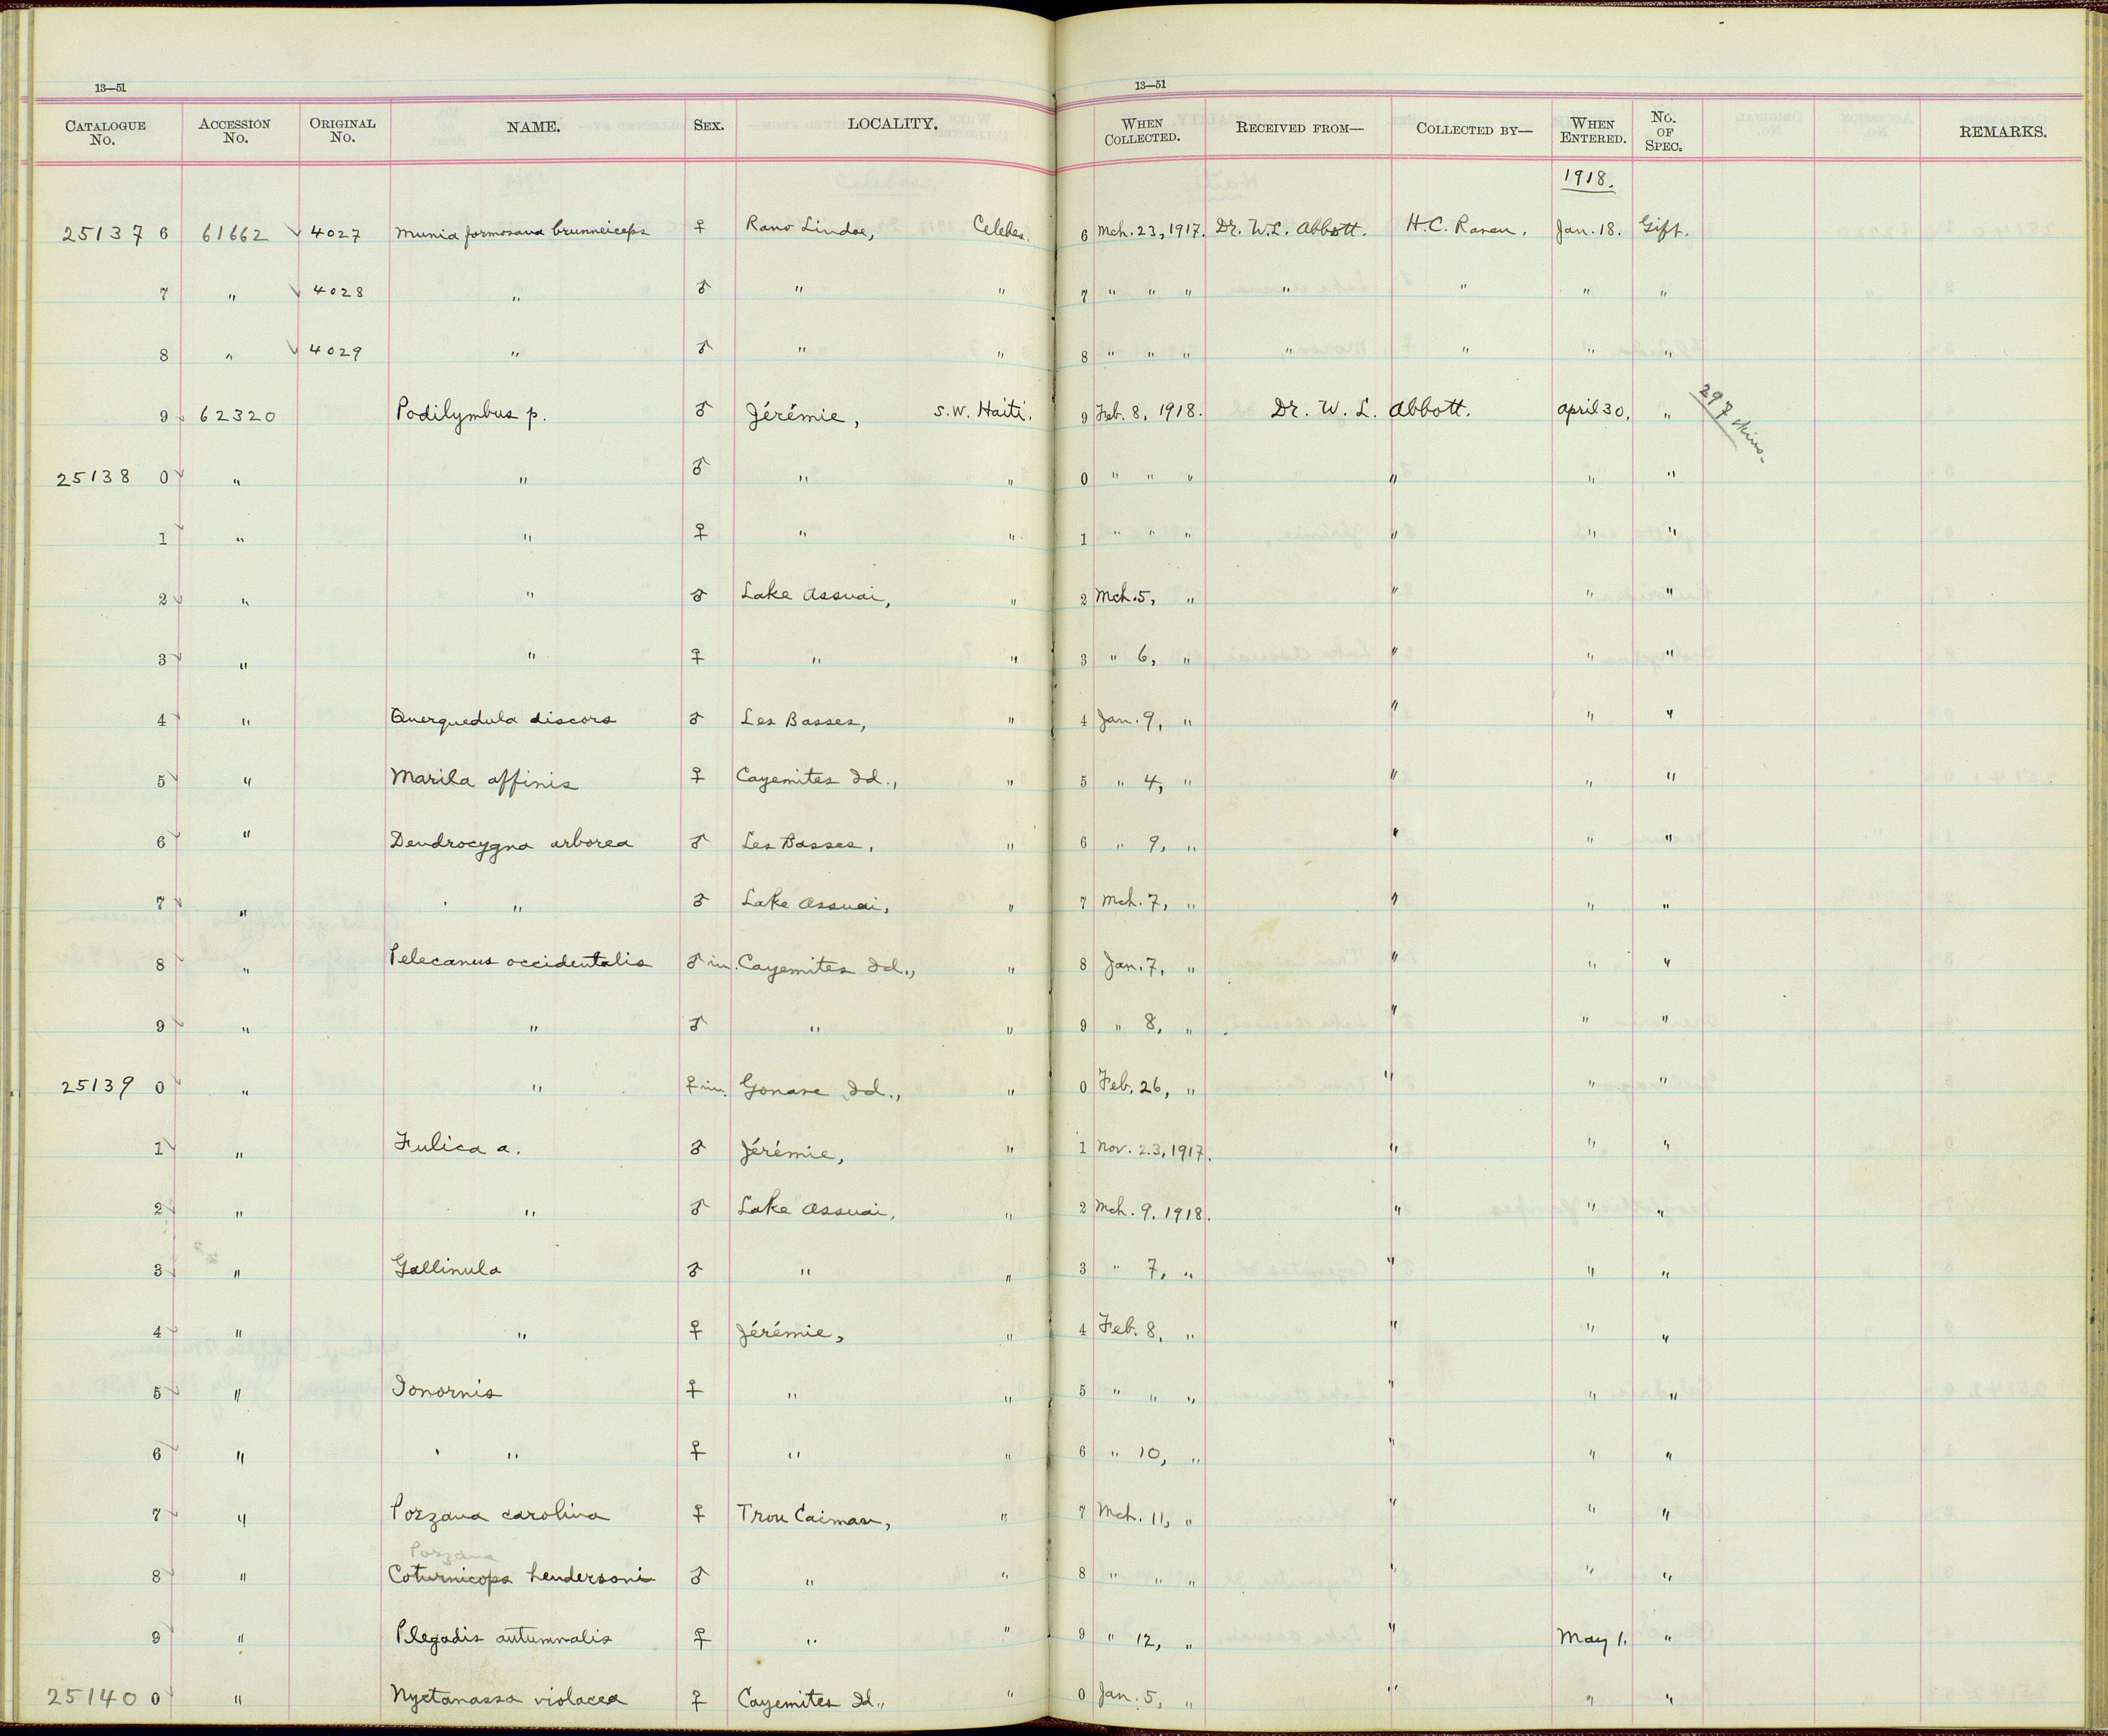 13—51 13—51
CATALOGUE No. ACCESSION No. ORIGINAL No. NAME. SEX. LOCALITY. WHEN COLLECTED. RECEIVED FROM— COLLECTED BY— WHEN ENTERED. No. OF SPEC. REMARKS.
1918.
25137 6 61662 ✓ 4027 Munia formosana brunneiceps ♀ Rano Lindoe, Celebes. 6 Mch. 23, 1917. Dr. W.L. Abbott. H.C. Raven. Jan. 18. Gift.
7 " ✓ 4028 " ♂ " " 7 " " " " " " "
8 " ✓ 4029 " ♂ " " 8 " " " " " " "
9 62320 Podilymbus p. ♂ Jérémie, S.W. Haiti. 9 Feb. 8, 1918. Dr. W. L. Abbott. April 30. " 297 skins-
25138 0 " " ♂ " " 0 " " " " " "
1 " " ♀ " " 1 " " " " " "
2 " " ♂ Lake Assuai, " 2 Mch. 5, " " " "
3 " " ♀ " " 3 " 6, " " " "
4 " Querquedula discors ♂ Les Basses, " 4 Jan. 9, " " " "
5 " Marila affinis ♀ Cayemites Id., " 5 " 4, " " " "
6 " Dendrocygna arborea ♂ Les Basses, " 6 " 9, " " " "
7 " " ♂ Lake Assuai, " 7 Mch. 7, " " " "
8 " Pelecanus occidentalis ♂ im. Cayemites Id., " 8 Jan. 7, " " " "
9 " " ♂ " " 9 " 8, " " " "
25139 0 " " ♀ im. Gonave Id., " 0 Feb. 26, " " " "
1 " Fulica a. ♂ Jérémie, " 1 Nov. 23, 1917. " " "
2 " " ♂ Lake Assuai, " 2 Mch. 9, 1918. " " "
3 " Gallinula ♂ " " 3 " 7, " " " "
4 " " ♀ Jérémie, " 4 Feb. 8, " " " "
5 " Ionornis ♀ " " 5 " " " " " "
6 " " ♀ " " 6 " 10, " " " "
7 " Porzana carolina ♀ Trou Caiman, " 7 Mch. 11, " " " "
Porzana
8 " Coturnicops hendersoni ♂ " " 8 " " " " " "
9 " Plegadis autumnalis ♀ " " 9 " 12, " " May 1. "
25140 0 " Nyctanassa violacea ♀ Cayemites Id., " 0 Jan. 5, " " " "